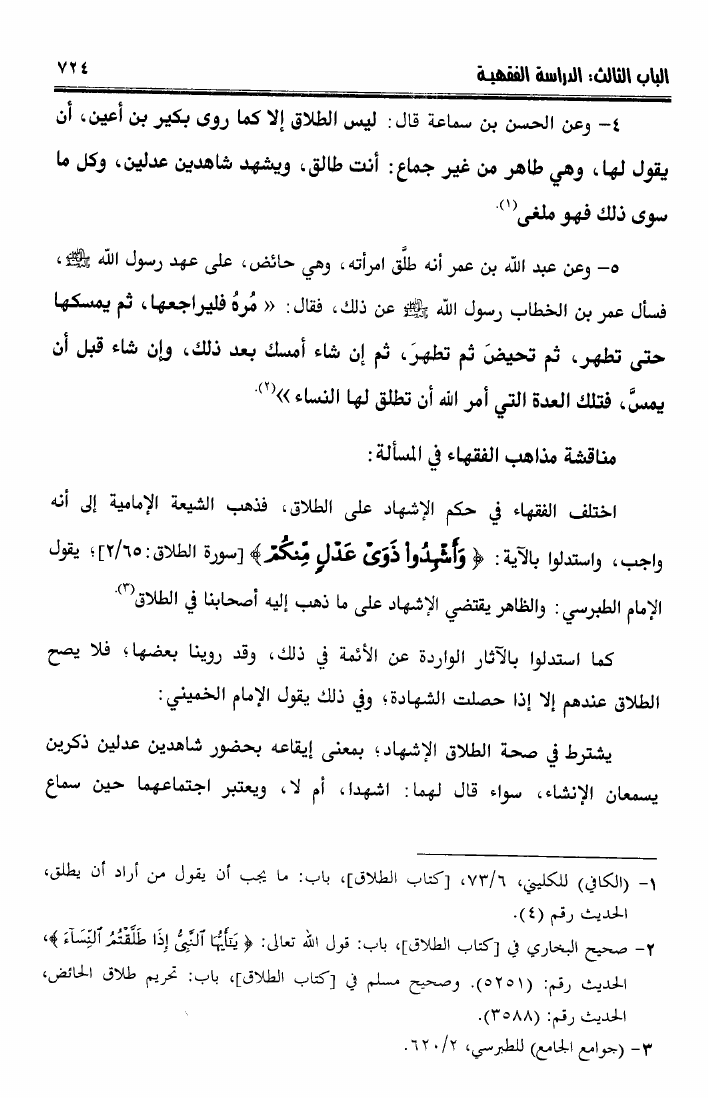 الباب الثالث: الدراسة الفقهية ٧٢٤
٤- وعن الحسن بن سماعة قال: ليس الطلاق إلا كما روى بكير بن أعين، أن
يقول لها، وهي طاهر من غير جماع: أنت طالق، ويشهد شاهدين عدلين، وكل ما
سوى ذلك فهو ملغى(١).
٥- وعن عبد الله بن عمر أنه طلَّق امرأته، وهي حائض، على عهد رسول الله ﷺ،
فسأل عمر بن الخطاب رسول الله ﷺ عن ذلك، فقال: « مُرهُ فليراجعها، ثم يمسكها
حتى تطهر، ثم تحيضَ ثم تطهرَ، ثم إن شاء أمسك بعد ذلك، وإن شاء قبل أن
يمسَّ، فتلك العدة التي أمر الله أن تطلق لها النساء »(٢).
مناقشة مذاهب الفقهاء في المسألة:
اختلف الفقهاء في حكم الإشهاد على الطلاق، فذهب الشيعة الإمامية إلى أنه
واجب، واستدلوا بالآية: ﴿ وَأَشْهِدُواْ ذَوَىْ عَدْلٍ مِّنكُمْ ﴾ [سورة الطلاق:٢/٦٥]؛ يقول
الإمام الطبرسي: والظاهر يقتضي الإشهاد على ما ذهب إليه أصحابنا في الطلاق(٣).
كما استدلوا بالآثار الواردة عن الأئمة في ذلك، وقد روينا بعضها؛ فلا يصح
الطلاق عندهم إلا إذا حصلت الشهادة؛ وفي ذلك يقول الإمام الخميني:
يشترط في صحة الطلاق الإشهاد؛ بمعنى إيقاعه بحضور شاهدين عدلين ذكرين
يسمعان الإنشاء، سواء قال لهما: اشهدا، أم لا، ويعتبر اجتماعهما حين سماع
١- (الكافي) للكليني، ٧٣/٦، [كتاب الطلاق]، باب: ما يجب أن يقول من أراد أن يطلق،
الحديث رقم (٤).
٢- صحيح البخاري في [كتاب الطلاق]، باب: قول الله تعالى: ﴿ يَٰٓأَيُّهَا ٱلنَّبِىُّ إِذَا طَلَّقْتُمُ ٱلنِّسَآءَ ﴾،
الحديث رقم: (٥٢٥١). وصحيح مسلم في [كتاب الطلاق]، باب: تحريم طلاق الحائض،
الحديث رقم: (٣٥٨٨).
٣- (جوامع الجامع) للطبرسي، ٦٢٠/٢.